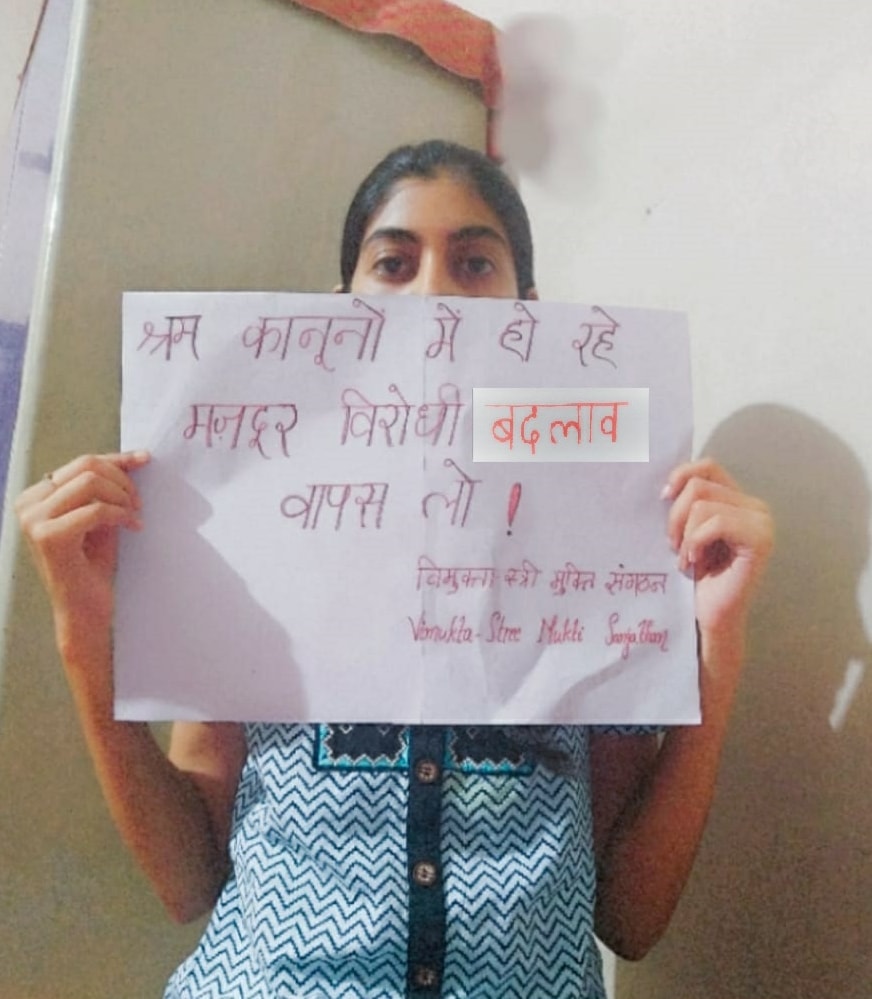 श्रम कानूनों में हो रहे
मज़दूर विरोधी बदलाव
वापस लो !
विमुक्ता स्त्री मुक्ति संगठन
Vimukta-Stree Mukti Sangathan